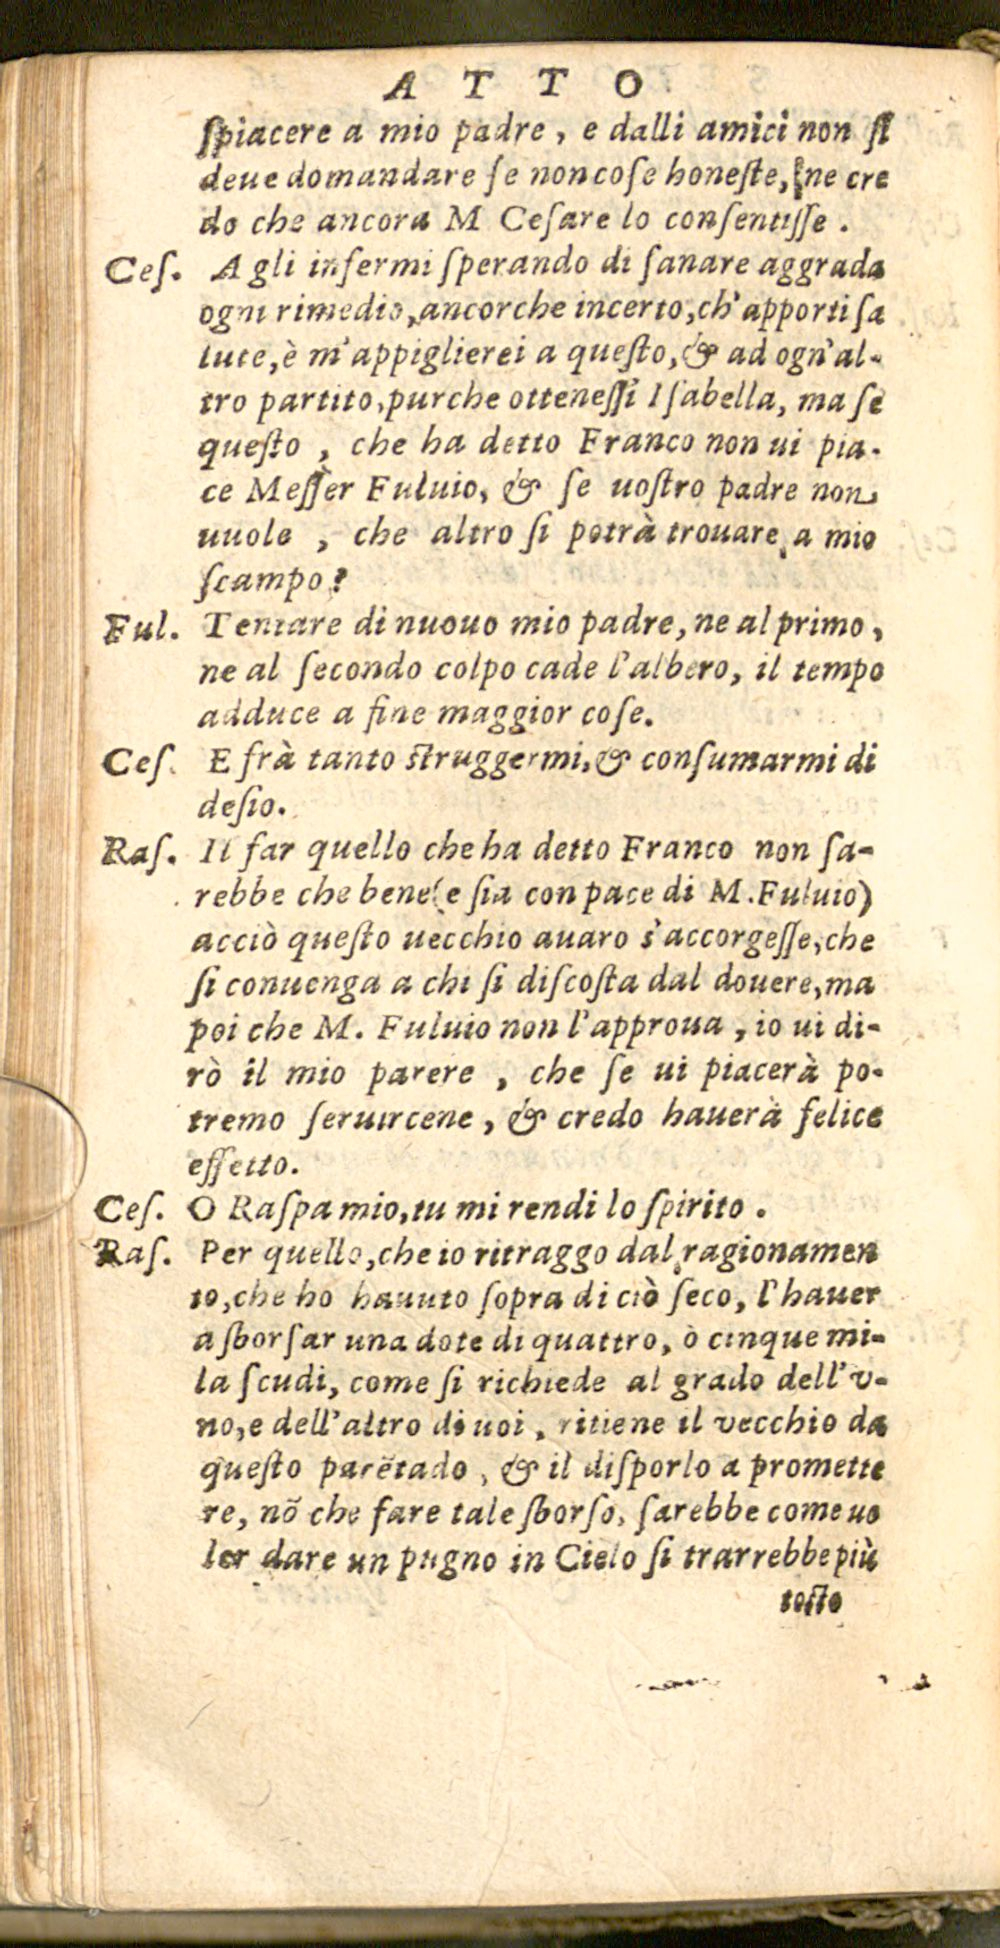 ATTO
ſpiacere a mio padre, e dalli amici non ſi
deue domandare ſe non coſe honeſte, ne cre
do che ancora M Ceſare lo conſentiſſe.
Ceſ. A gli infermi ſperando di ſanare aggrada
ogni rimedio, ancorche incerto, ch'apporti ſa
lute, è m'appiglierei a queſto, & ad ogn'al-
tro partito, purche otteneſſi Iſabella, ma ſe
queſto, che ha detto Franco non ui pia-
ce Meſſer Fuluio, & ſe uoſtro padre non
uuole, che altro ſi potrà trouare a mio
ſcampo?
Ful. Tentare di nuouo mio padre, ne al primo,
ne al ſecondo colpo cade l'albero, il tempo
adduce a fine maggior coſe.
Ceſ. E frà tanto ſtruggermi, & conſumarmi di
deſio.
Raſ. Il far quello che ha detto Franco non ſa-
rebbe che bene (e ſia con pace di M. Fuluio)
acciò queſto uecchio auaro s'accorgeſſe, che
ſi conuenga a chi ſi diſcoſta dal douere, ma
poi che M. Fuluio non l'approua, io ui di-
rò il mio parere, che ſe ui piacerà po-
tremo ſeruircene, & credo hauerà felice
effetto.
Ceſ. O Raſpa mio, tu mi rendi lo ſpirito.
Raſ. Per quello, che io ritraggo dal ragionamen
to, che ho hauuto ſopra di ciò ſeco, l'hauer
a sborſar una dote di quattro, ò cinque mi-
la ſcudi, come ſi richiede al grado dell'v-
no, e dell'altro di uoi, ritiene il vecchio da
queſto parẽtado, & il diſporlo a promette
re, nõ che fare tale sborſo, ſarebbe come uo
ler dare un pugno in Cielo ſi trarrebbe più
toſto